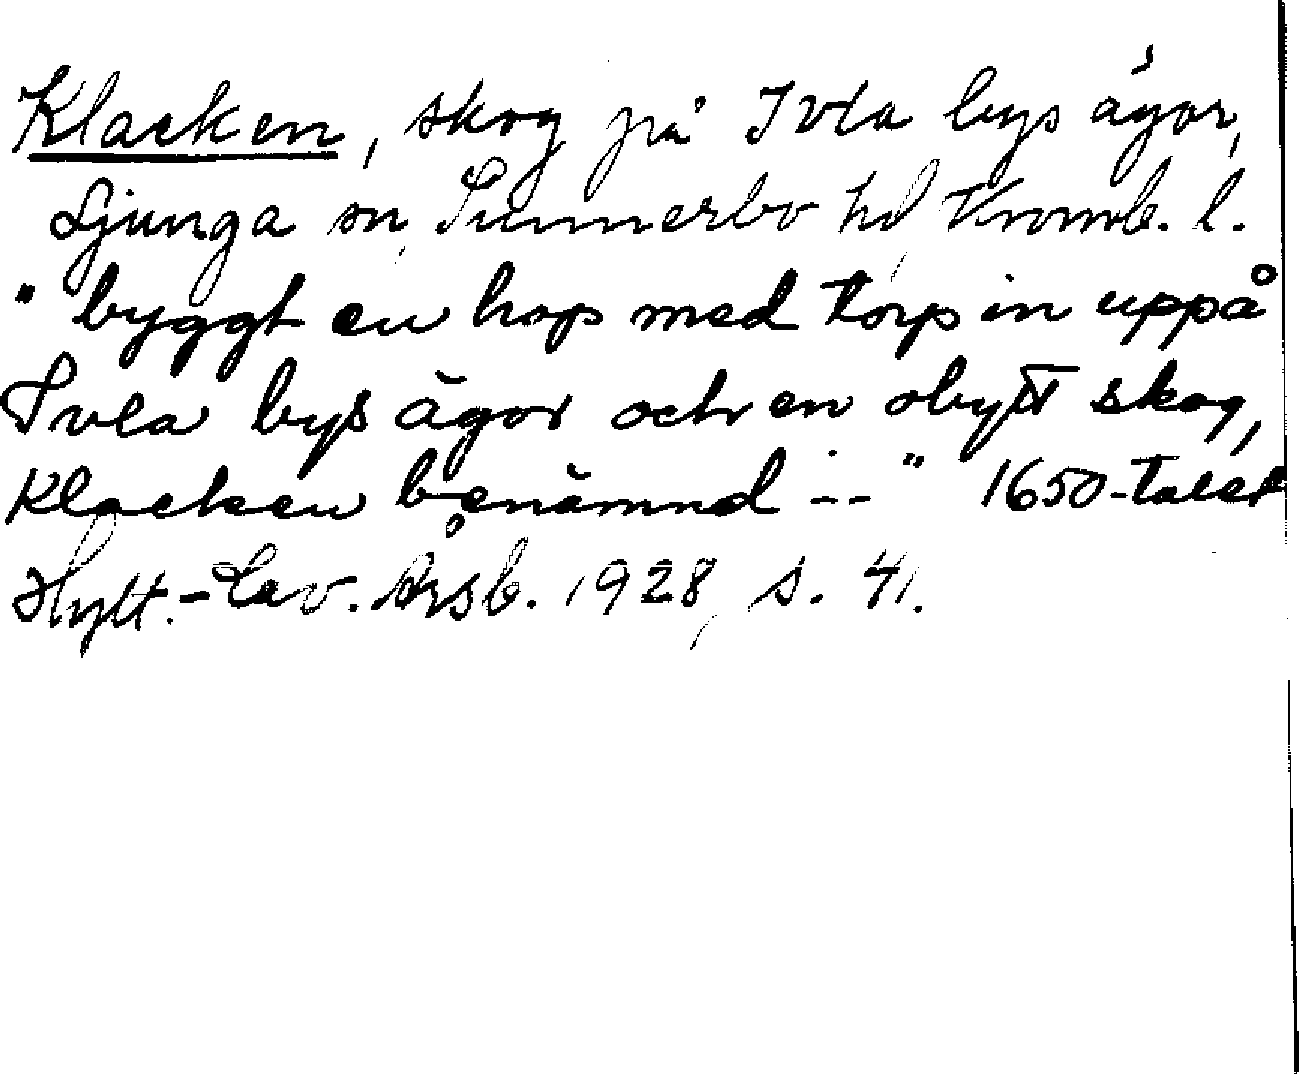 Klacken, skog på Ivla bys ägor,
Ljunga sn, Sunnerbo hd, Kronob. l.
"byggt en hop med torp in uppå
Ivla bys ägor och en obytt skog,
Klacken benämnd --" 1650-talet
Hylt.-Cav. Årsb. 1928, s. 41.